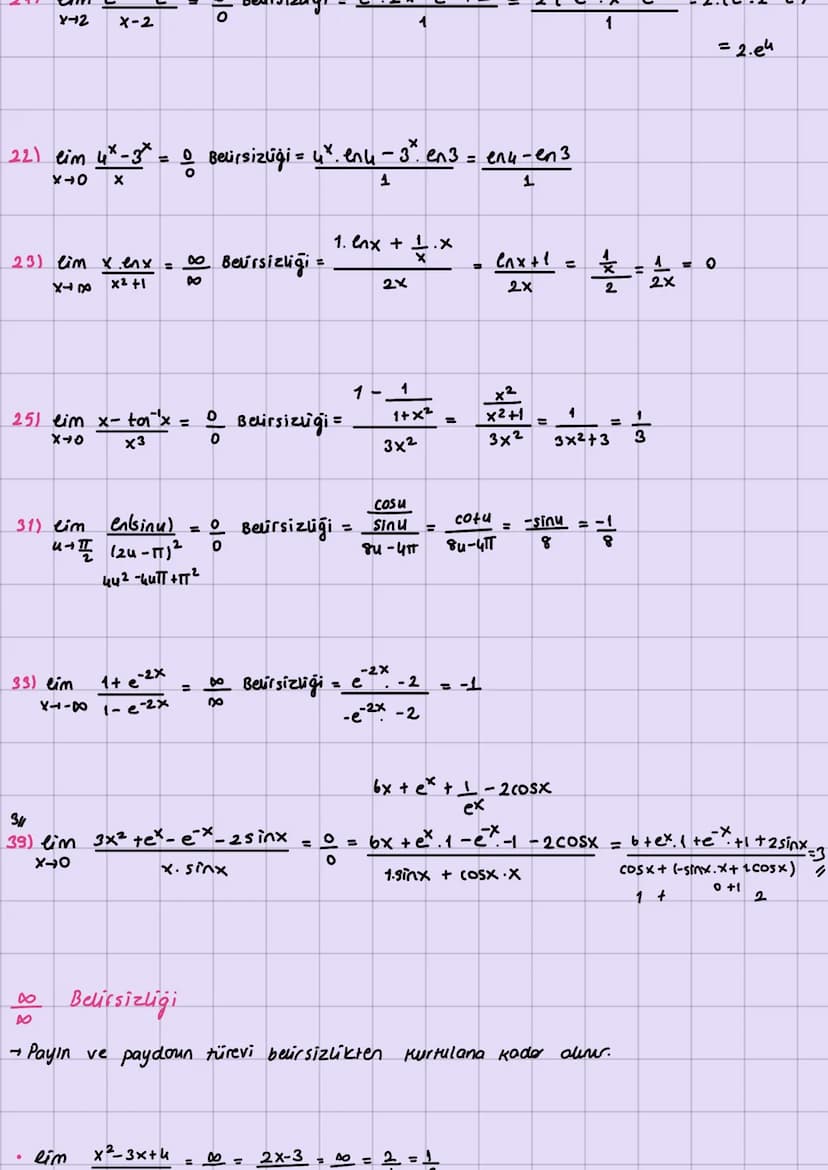 x→2 x-2 0 1 1
= 2.e⁴
22) lim (4ˣ-3ˣ)/x = 0/0 Belirsizliği = (4ˣ.ln4 - 3ˣ.ln3)/1 = (ln4-ln3)/1
x→0
23) lim (x.lnx)/(x²+1) = ∞/∞ Belirsizliği = (1.lnx + 1/x.x)/2x = (lnx+1)/2x = (1/x)/2 = 1/2x = 0
x→∞
25) lim (x-tan⁻¹x)/x³ = 0/0 Belirsizliği = (1 - 1/(1+x²))/3x² = (x²/(x²+1))/3x² = 1/(3x²+3) = 1/3
x→0
31) lim ln(sinu)/(2u-π)² = 0/0 Belirsizliği = (cosu/sinu)/(8u-4π) = cotu/(8u-4π) = -sinu/8 = -1/8
u→π/2
4u²-4uπ+π²
33) lim (1+e⁻²ˣ)/(1-e⁻²ˣ) = ∞/∞ Belirsizliği = (e⁻²ˣ.-2)/(-e⁻²ˣ.-2) = -1
x→-∞
6x + eˣ + 1/eˣ - 2cosx
39) lim (3x²+eˣ-e⁻ˣ-2sinx)/(x.sinx) = 0/0 = (6x+eˣ.1-e⁻ˣ.-1-2cosx)/(1.sinx + cosx.x) = (6+eˣ.1+e⁻ˣ.+1+2sinx)/(cosx+(-sinx.x+1.cosx)) =3
x→0
1 + 0+1 2
∞/∞ Belirsizliği
→ Payın ve paydaun türevi belirsizlikten kurtulana kadar alınır.
• lim x²-3x+4 = ∞ = 2x-3 = ∞ = 2 = 1